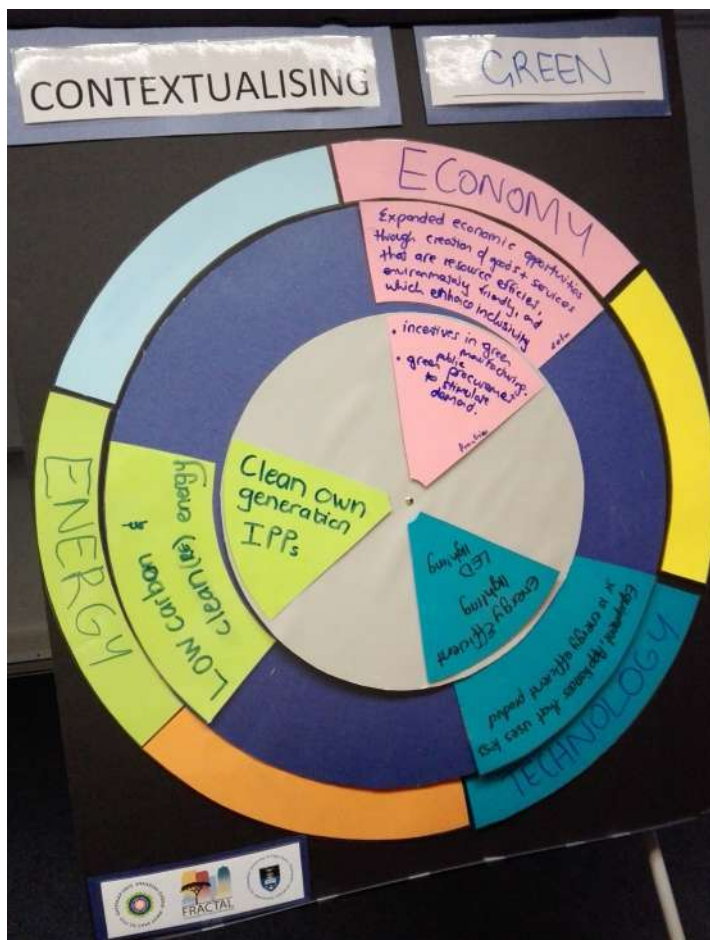 CONTEXTUALISING
GREEN
ECONOMY
Expanded economic opportunities
through creation of goods + services
that are resource efficies,
environmately friendly, and
which enhace inclusivity
• incentives in green
manufacturing.
• green public procurement
to stimulate
demand.
ENERGY
LOW carbon &
clean (RE) energy
Clean own
generation
IPPs
TECHNOLOGY
Equipment Appliances that uses less
or is energy efficient product
Energy Efficient
lighting
LED
lighting
FRACTAL